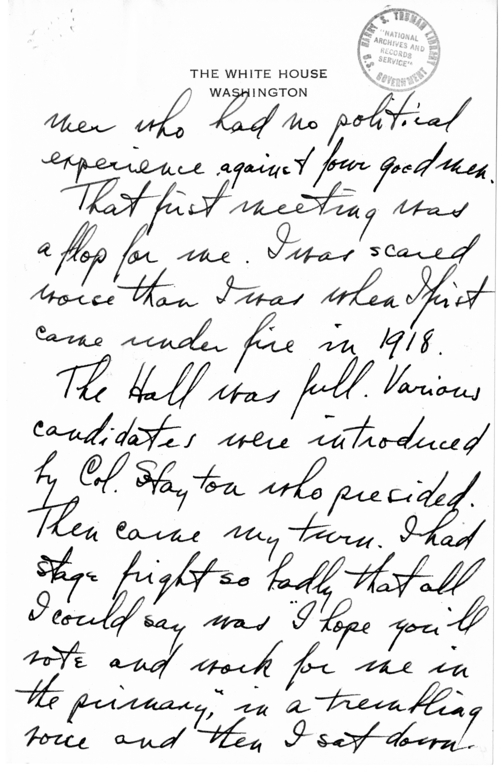 HARRY S. TRUMAN LIBRARY
"NATIONAL
ARCHIVES AND
RECORDS
SERVICE"
U.S. GOVERNMENT
THE WHITE HOUSE
WASHINGTON
men who had no political
experience against four good men.
That first meeting was
a flop for me. I was scared
worse than I was when I first
came under fire in 1918.
The Hall was full. Various
candidates were introduced
by Col. Stayton who presided.
Then came my turn. I had
stage fright so badly that all
I could say was "I hope you'll
vote and work for me in
the primary," in a trembling
voice and then I sat down.